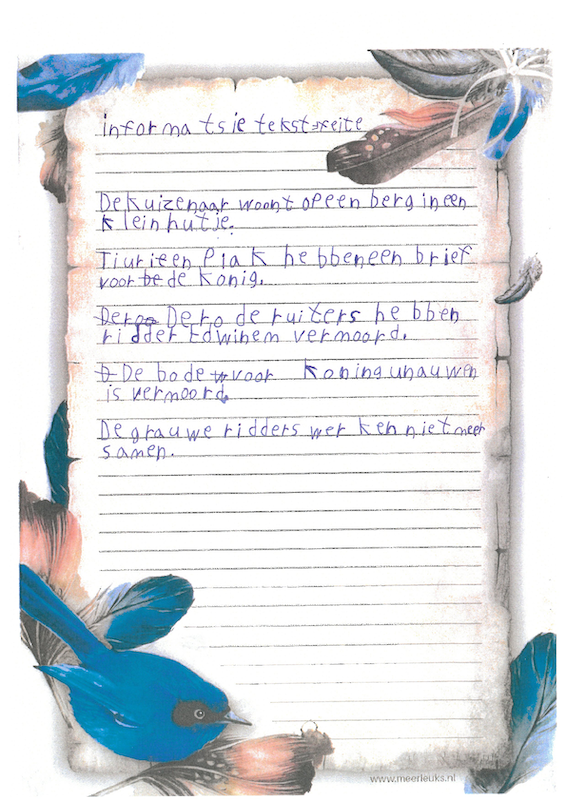 informatsie tekst feite
De kuizenaar woont op een berg in een
klein hutje.
Tiuri en Piak hebben een brief
voor de konig.
De ro de ruiters hebben
ridder Edwinem vermoord.
De bode voor koning unauwen
is vermoord.
De grauwe ridders werken niet meer
samen.
www.meerleuks.nl